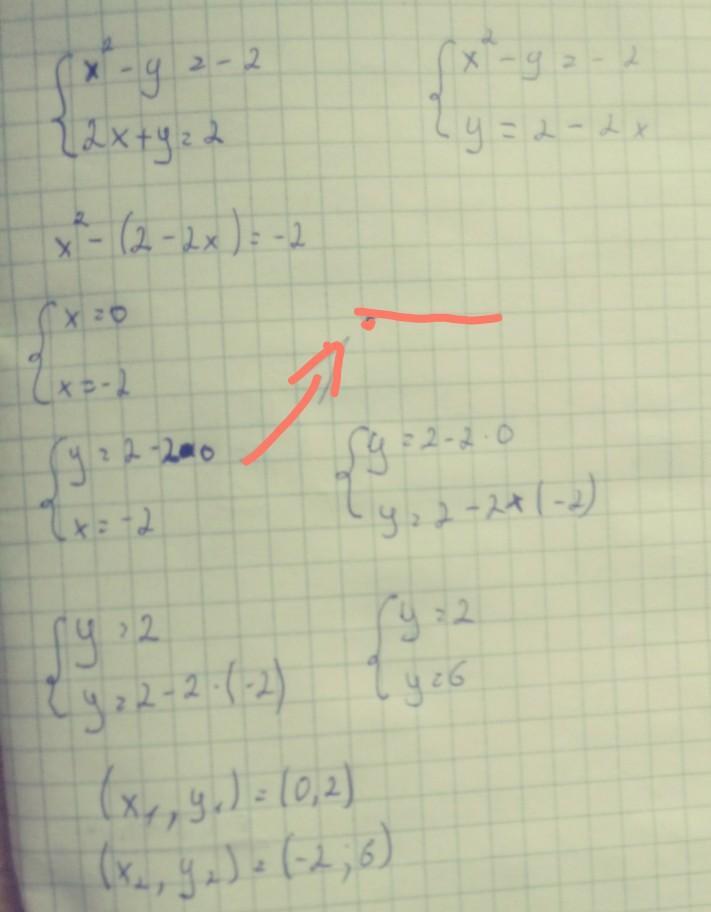 x² - y = -2
2x + y = 2
x² - y = -2
y = 2 - 2x
x² - (2 - 2x) = -2
x = 0
x = -2
y = 2 - 2·0
x = -2
y = 2 - 2·0
y = 2 - 2*(-2)
y = 2
y = 2 - 2·(-2)
y = 2
y = 6
(x₁, y₁) = (0,2)
(x₂, y₂) = (-2;6)